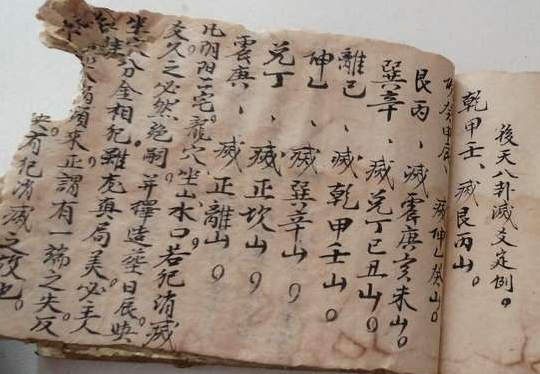 後天八卦滅爻定例。
乾甲壬、滅艮丙山。
滅坤乙癸山。
艮丙、滅震庚亥未山。
巽辛、滅兌丁巳丑山。
離己、滅乾甲壬山。
坤乙、滅巽辛山。
兌丁、滅正坎山。
震庚、滅正離山。
凡阴阳二宅龍穴坐山水口若犯消滅
爻久之必然絕嗣。并擇造塟日辰與
坐穴分金相犯。雖龙真局美必主人
禍須來。正謂有一端之失反
有犯消滅之故也。